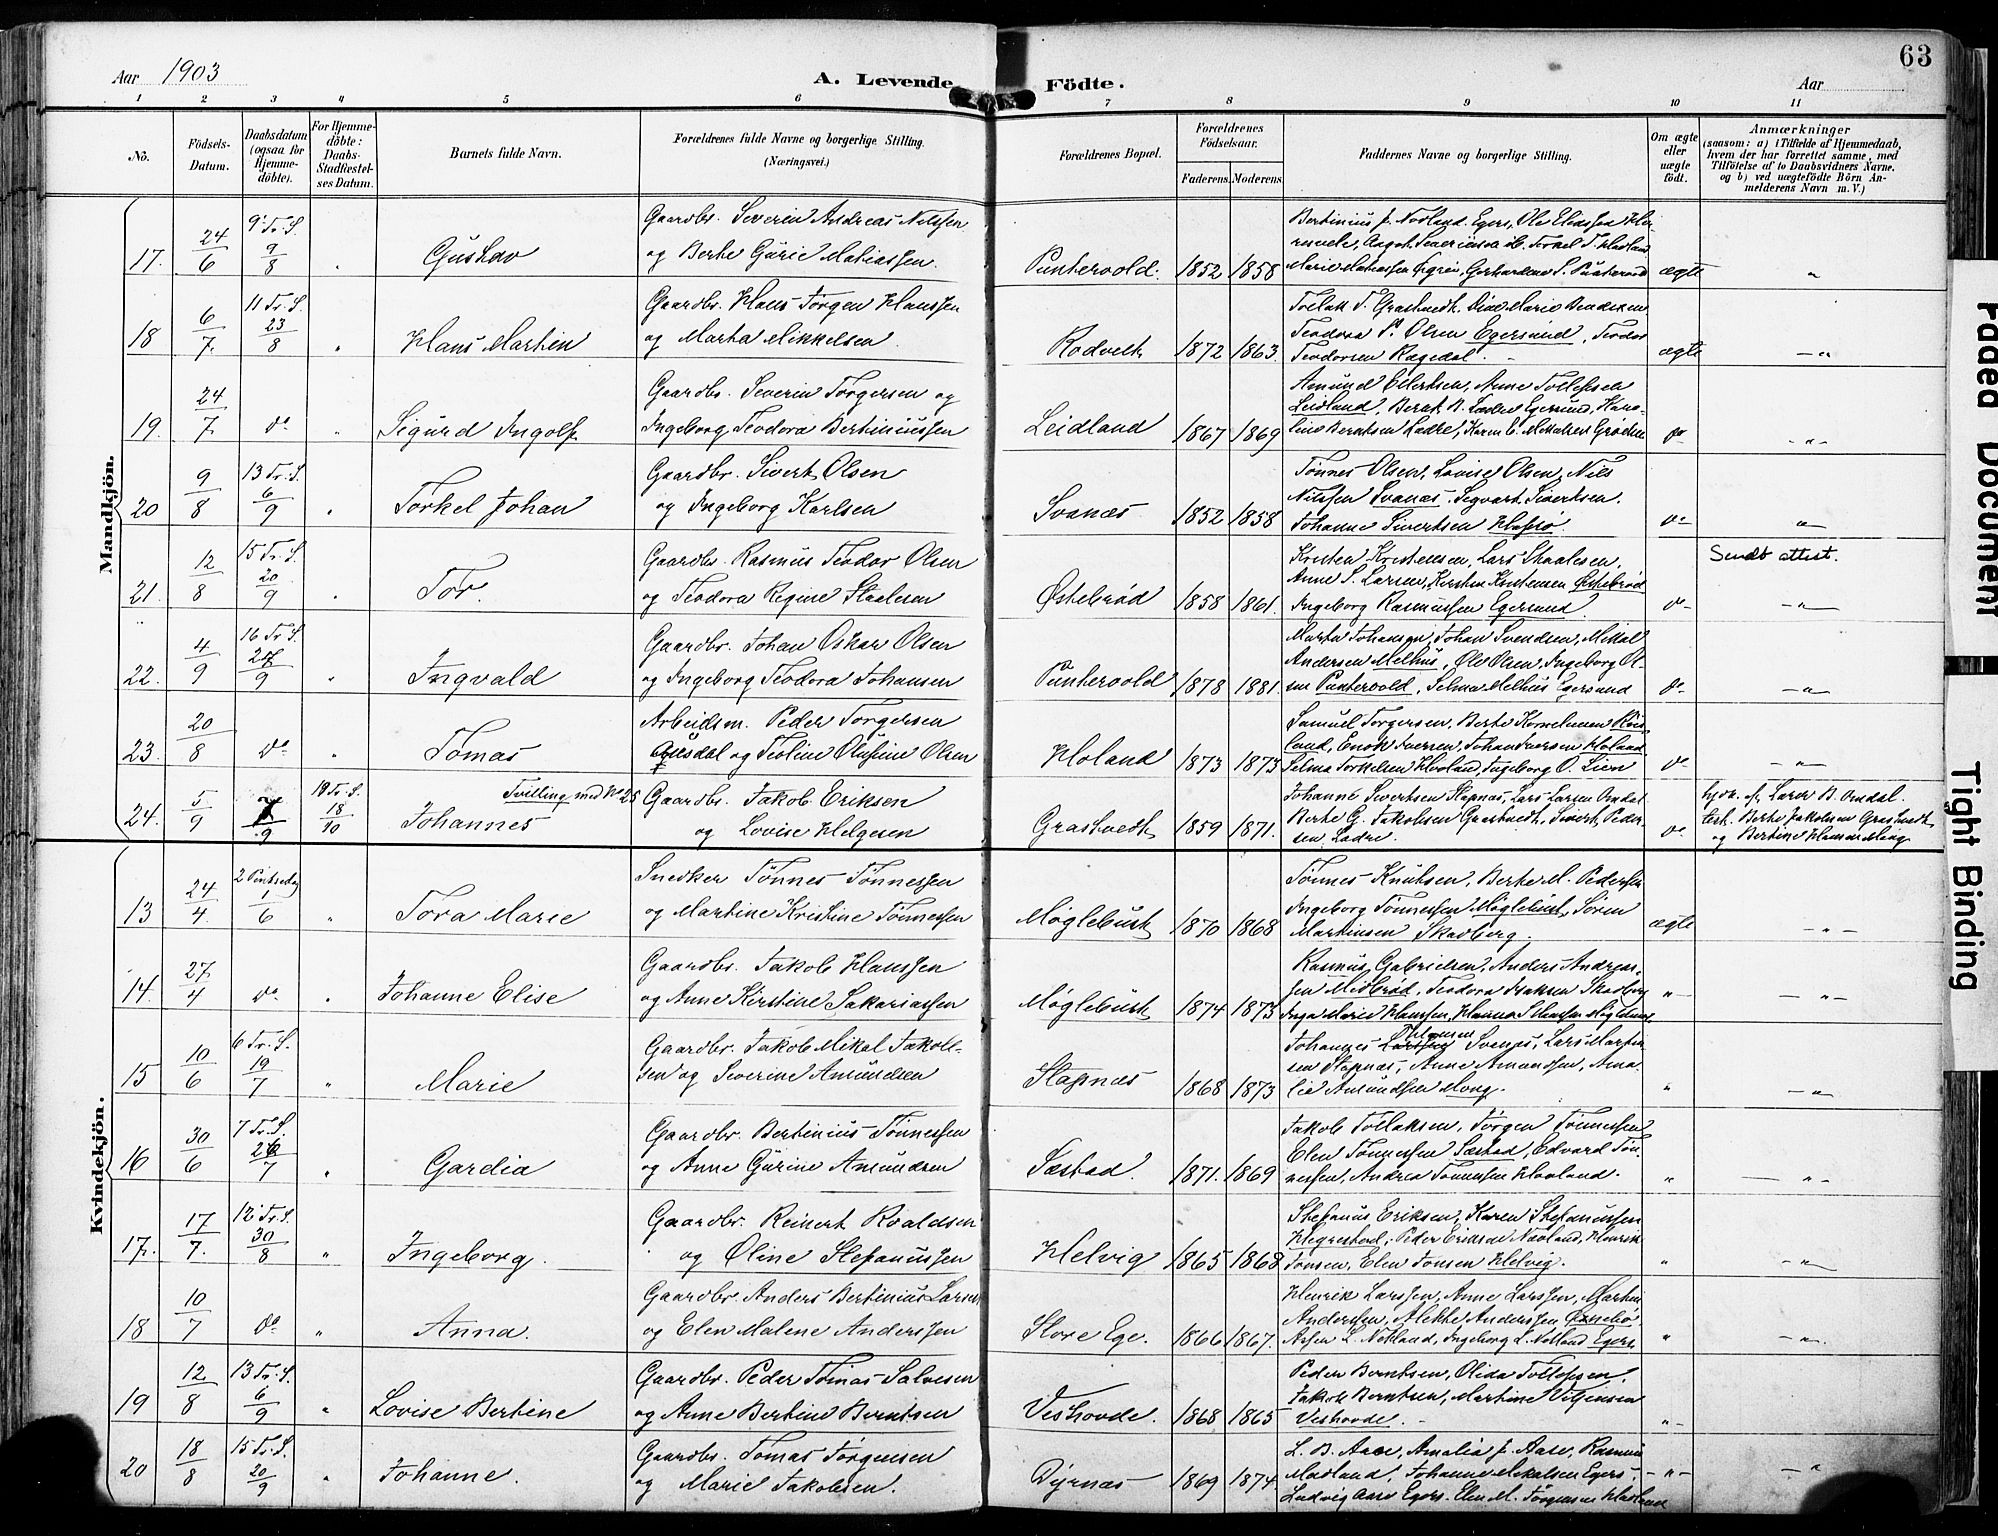 63
Aar 1903
A. Levende Födte.
Aar
1 2 3 4 5 6 7 8 9 10 11
No.
Födsels-
Datum.
Daabsdatum
(ogsaa for
Hjemme-
döbte).
For Hjemme-
döbte:
Daabs-
Stadfæstel-
ses Datum.
Barnets fulde Navn.
Forældrenes fulde Navne og borgerlige Stilling.
(Næringsvei.)
Forældrenes Bopæl.
Forældrenes
Födselsaar.
Faderens. Moderens.
Faddernes Navne og borgerlige Stilling.
Om ægte
eller
uægte
födt.
Anmærkninger
(saasom: a) i Tilfælde af Hjemmedaab,
hvem der har forrettet samme, med
Tilföielse af to Daabsvidners Navne,
og b) ved uægtefödte Börn An-
melderens Navn m. V.)
Mandkjön.
17. 24/6 9' Tr. S. 9/8 " Gustav
Gaardbr. Severin Andreas Nilssen
og Berte Gurie Matiassen.
Puntervold. 1852 1858
ægte "
18 6/7. 11 Tr. S. 23/8 " Hans Martin
Gaardbr. Hans Jørgen Hanssen
og Marta Mikkelsen.
Rodvelt 1872 1863.
Teodora P. Olsen Egersund, Teodor
Teodorsen Rægedal.
ægte "
19. 24/7. do " Sigurd Ingolf
Gaardbr. Severin Torgersen og
Ingeborg Teodora Bertiniussen
Leidland 1867 1869
Amund Eilertsen, Anne Tollefsen
Leidland,
do "
20 9/8 13 Tr. S. 6/9 " Torkel Johan
Gaardbr. Sivert Olsen
og Ingeborg Karlsen
Svanæs 1852 1858
Tønnes Olsen, Lovise Olsen, Nils
Nilssen Svanæs. Sigvart Sivertsen.
Johanne Sivertsen
do "
21. 12/8 15 Tr. S. 20/9 " Tor.
Gaardbr. Rasmus Teodor Olsen
og Teodora Regine Staalesen
Østebrød 1858 1861.
Kristen Kristensen, Lars Staalesen,
Anne S. Larsen, Kirsten Kristensen Østebrød
Ingeborg Rasmussen Egersund
do Sendt attest. "
22. 4/9 16 Tr. S. 27/9 " Ingvald
Gaardbr. Johan Oskar Olsen
og Ingeborg Teodora Johansen
Puntervold 1878 1881.
Marta Johansen, Johan Svendsen, Mikal
Andersen Melhus, Ole Olsen, Ingeborg Ol-
sen Puntervold, Selma Melhus Egersund
do "
23. 20/8 do " Tomas
Arbeidsm. Peder Torgersen
og Teoline Olufine Olsen
Holand 1873 1873
Samuel Torgersen, Berte
Enok Iversen, Johan Iversen Holand
Selma Torkelsen Hovland, Ingeborg O. Lien
do "
24. 5/9 18 Tr. S. 18/10 Tvilling med No 25 Johannes
Gaardbr. Jakob Eriksen
og Lovise Helgesen
Grastvedt 1859 1871.
Johanne Sivertsen Stapnæs, Lars Larsen Omdal
Berte G. Jakobsen Grastvedt, Sivert Peder-
sen Ladre.
do
hjdb. af Lærer B. Omdal.
test. Berte Jakobsen Grastvedt
og Bertine Hansen Mong
Kvindekjön.
13 24/4. 2 Pintsedag 1/6 " Tora Marie
Snedker Tønnes Tønnessen
og Martine Kristine Tønnessen
Møglebust 1870 1868
Tønnes Knutsen, Berte M. Pedersen
Ingeborg Tønnessen Møglebust, Søren
Martinsen Skadberg.
ægte "
14. 27/4 do " Johanne Elise
Gaardbr. Jakob Hanssen
og Anne Kirstine Sakariassen
Møglebust 1874 1873
Rasmus Gabrielsen, Anders Andreas-
sen Midbrød, Teodora Isaksen Skadberg
" "
15 10/6 6 Tr. S. 19/7 " Marie
Gaardbr. Jakob Mikal Jakob-
sen og Severine Amundsen
Stapnæs 1868 1873
Johannes Larssen Svanes, Lars Martin-
sen Stapnæs, Anne Amundsen, Ama-
lie Amundsen Mong.
" "
16 30/6 7 Tr. S. 26/7 " Gardia
Gaardbr. Bertinius Tønnessen
og Anne Gurine Amundsen
Sæstad. 1871. 1869
Jakob Tollaksen, Jørgen Tønnessen
Elen Tønnessen Sæstad, Edvard Tøn-
nessen, Andrea Tønnessen Hovland.
" "
17. 17/7. 12 Tr. S. 30/8 " Ingeborg.
Gaardbr. Reinert Roaldsen
og Oline Stefanussen
Helvig 1865 1868
Stefanus Eriksen, Karen Stefanussen
Hegrestad, Peder Eriksen Nodland, Henrik
Jonsen, Elen Jonsen Helvig.
" "
18 10/7 do " Anna.
Gaardbr. Anders Bertinius Larsen
og Elen Malene Anderssen
Store Ege. 1866 1867.
Henrik Larssen, Anne Larssen, Marten
Anderssen,
" "
19 12/8 13 Tr. S. 6/9 " Lovise Bertine
Gaardbr. Peder Tomas Salvesen
og Anne Bertine Berntsen
Veshovde. 1868 1865
Peder Berntsen, Olida Tollefsen,
Jakob Berntsen, Martine
Veshovde.
" "
20 18/8 15 Tr. S. 20/9 " Johanne.
Gaardbr. Tomas Jørgensen
og Marie Jakobsen.
Dyrnæs 1869 1874.
L. B. Aase, Amalia J. Aase, Rasmus
Madland, Johanne Mikalsen Egers.
Ludvig Aase Egers. Elen M. Jørgensen Hovland
" "
Faded Document
Tight Binding